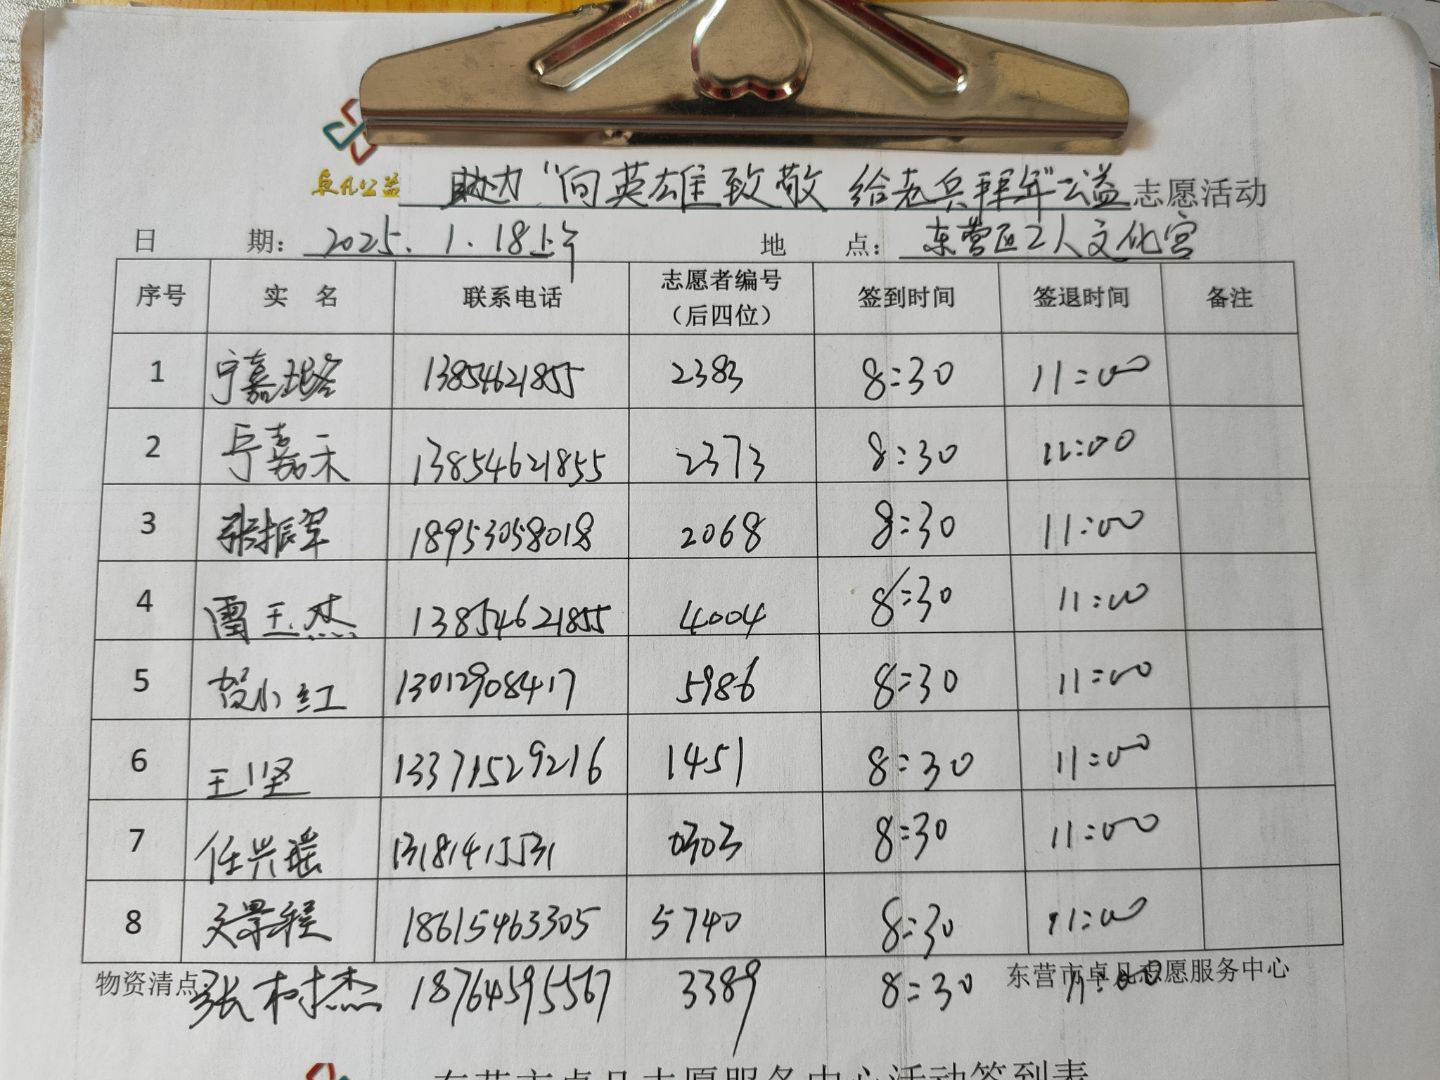 卓凡公益 助力“向英雄致敬 给老兵拜年”公益志愿活动
日 期: 2025.1.18上午 地 点: 东营区工人文化宫
序号 实 名 联系电话 志愿者编号（后四位） 签到时间 签退时间 备注
1 宁嘉珞 13854621855 2383 8:30 11:00
2 宁嘉禾 13854621855 2373 8:30 11:00
3 张振军 18953058018 2068 8:30 11:00
4 雷玉杰 13854621855 4004 8:30 11:00
5 贺小红 13012908417 5986 8:30 11:00
6 王坚 13371529216 1451 8:30 11:00
7 任兴瑶 13181415531 0303 8:30 11:00
8 文景程 18615463305 5740 8:30 11:00
物资清点: 东营市卓凡志愿服务中心
张树杰 18764595567 3389 8:30 11:00
东营市卓凡志愿服务中心活动签到表